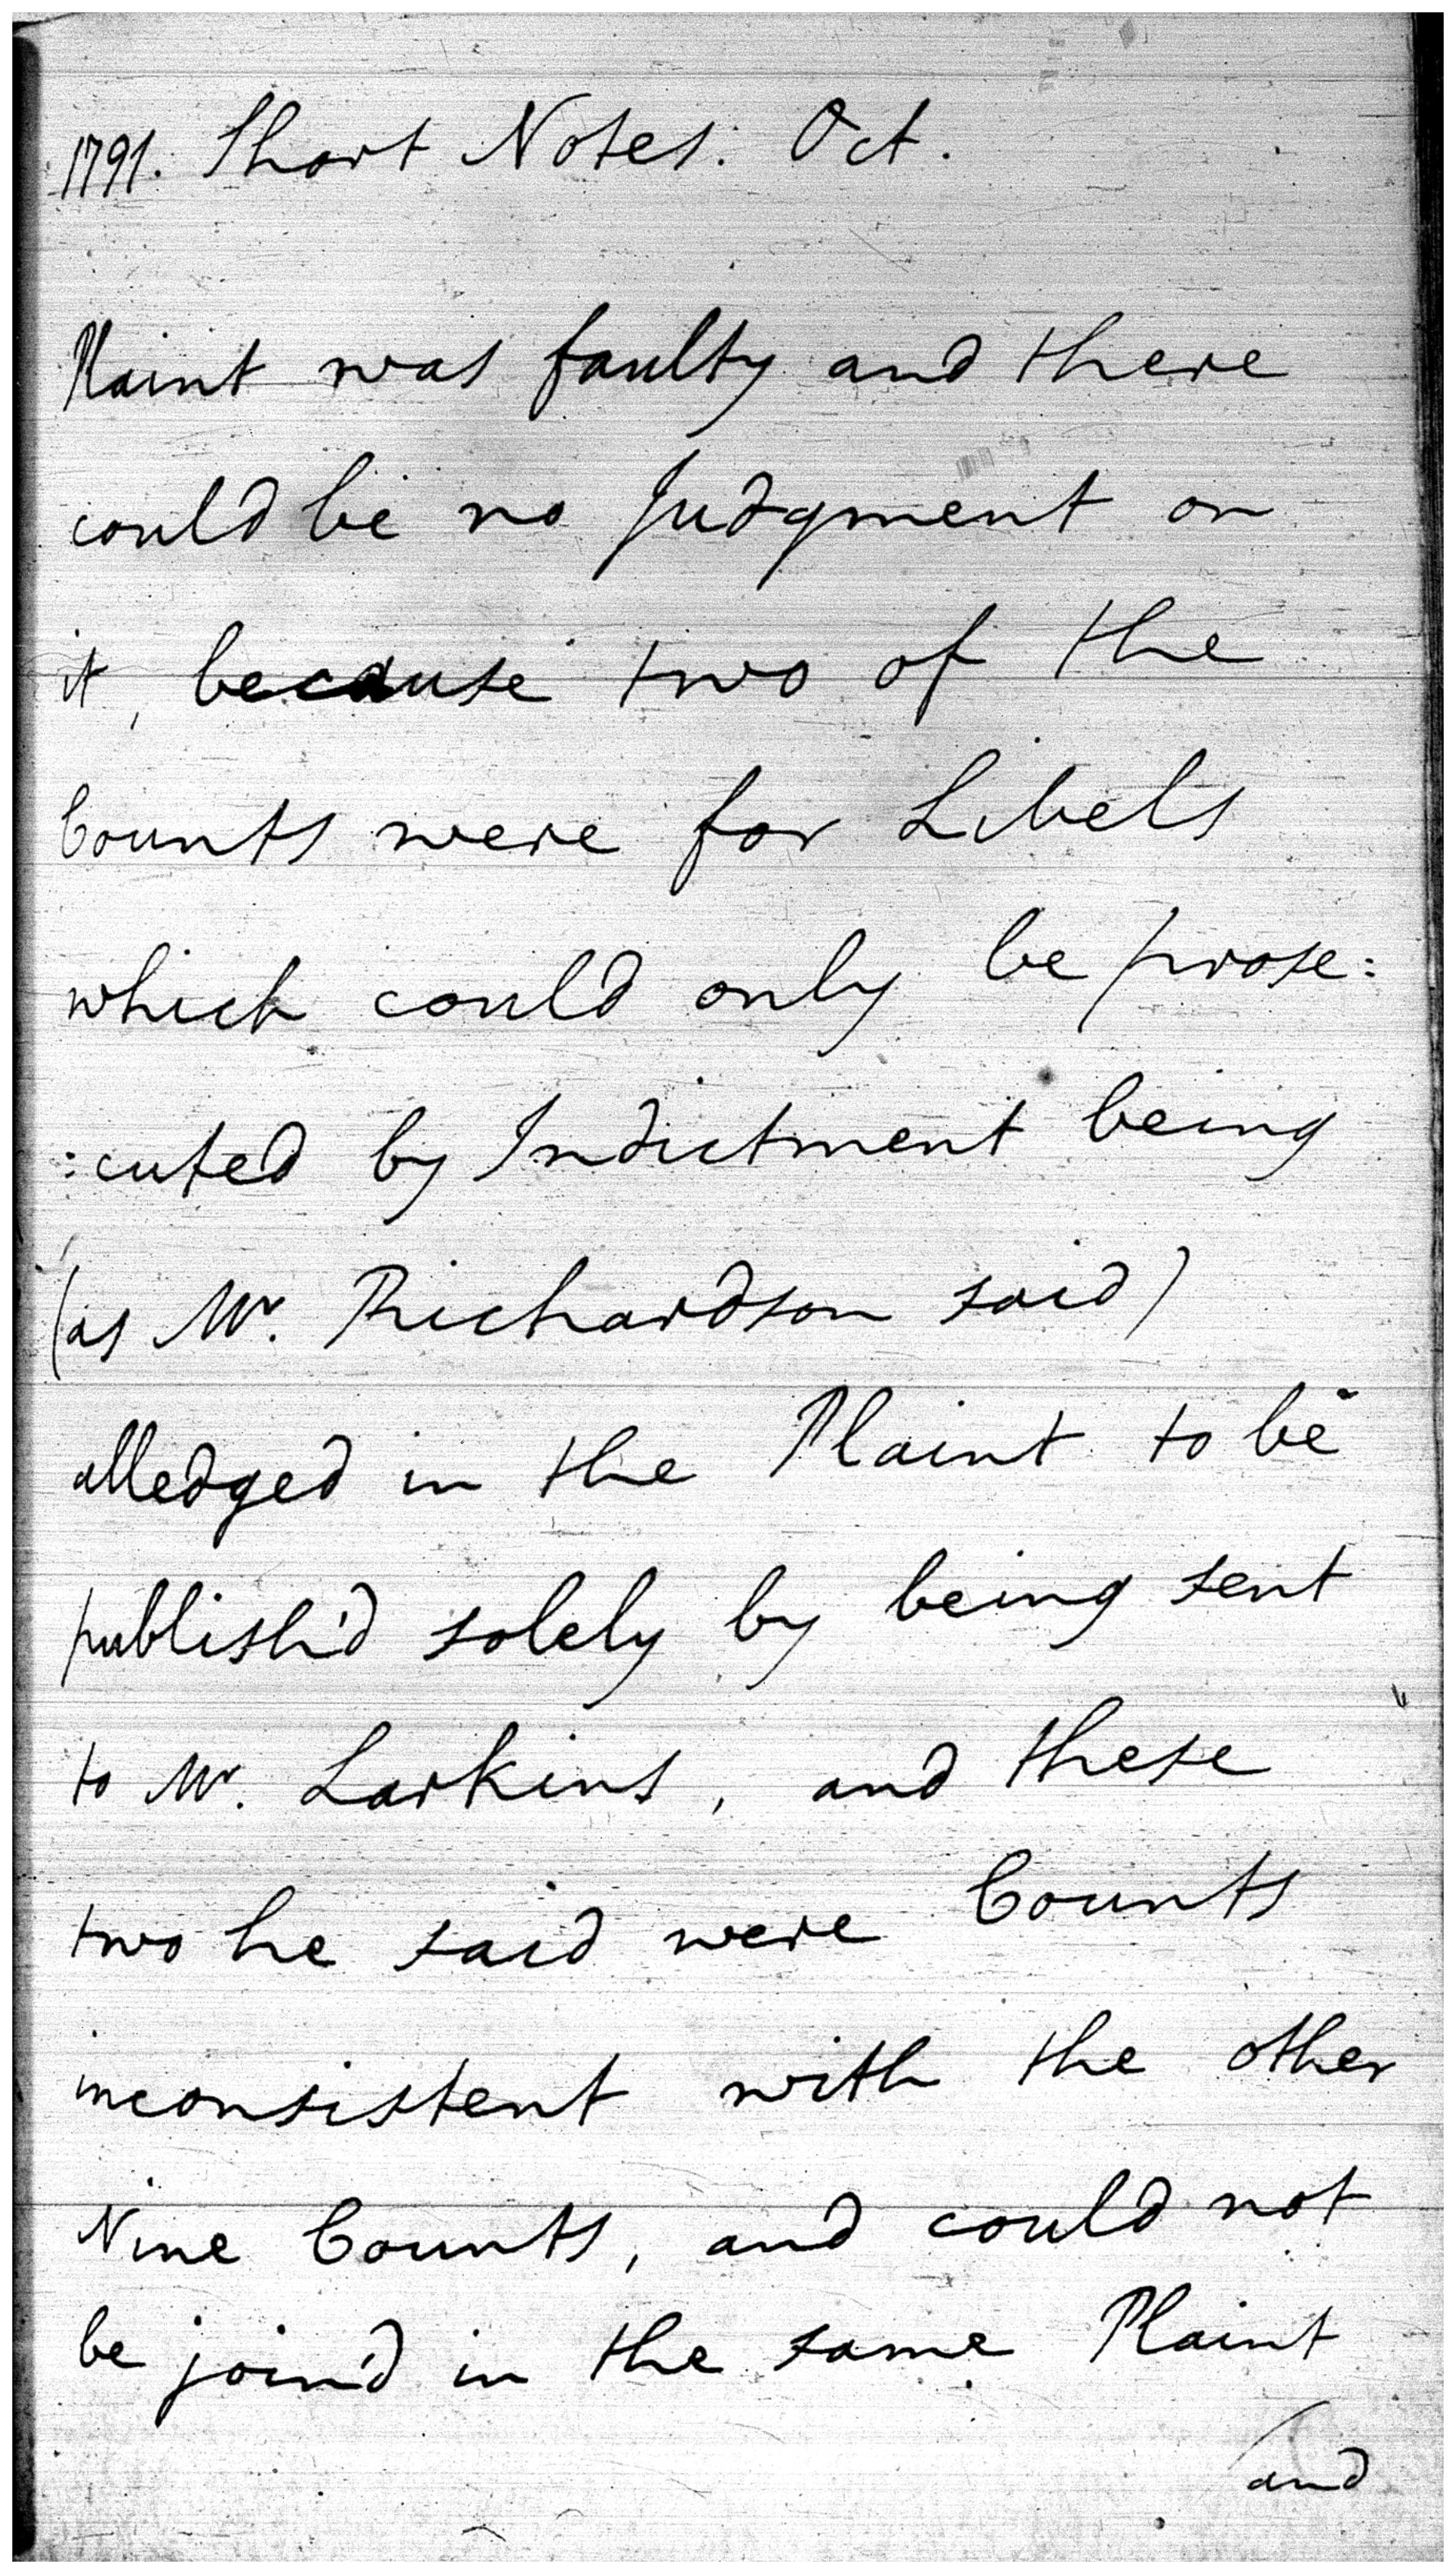 1791. Short Notes. Oct.
Plaint was faulty and there
could be no Judgment on
it, because two of the
Counts were for Libels
which could only be prose:
:cuted by Indictment being
(as Mr. Richardson said)
alledged in the Plaint to be
publish'd solely by being sent
to Mr. Larkins, and these
two he said were Counts
inconsistent with the other
Nine Counts, and could not
be join'd in the same Plaint
and